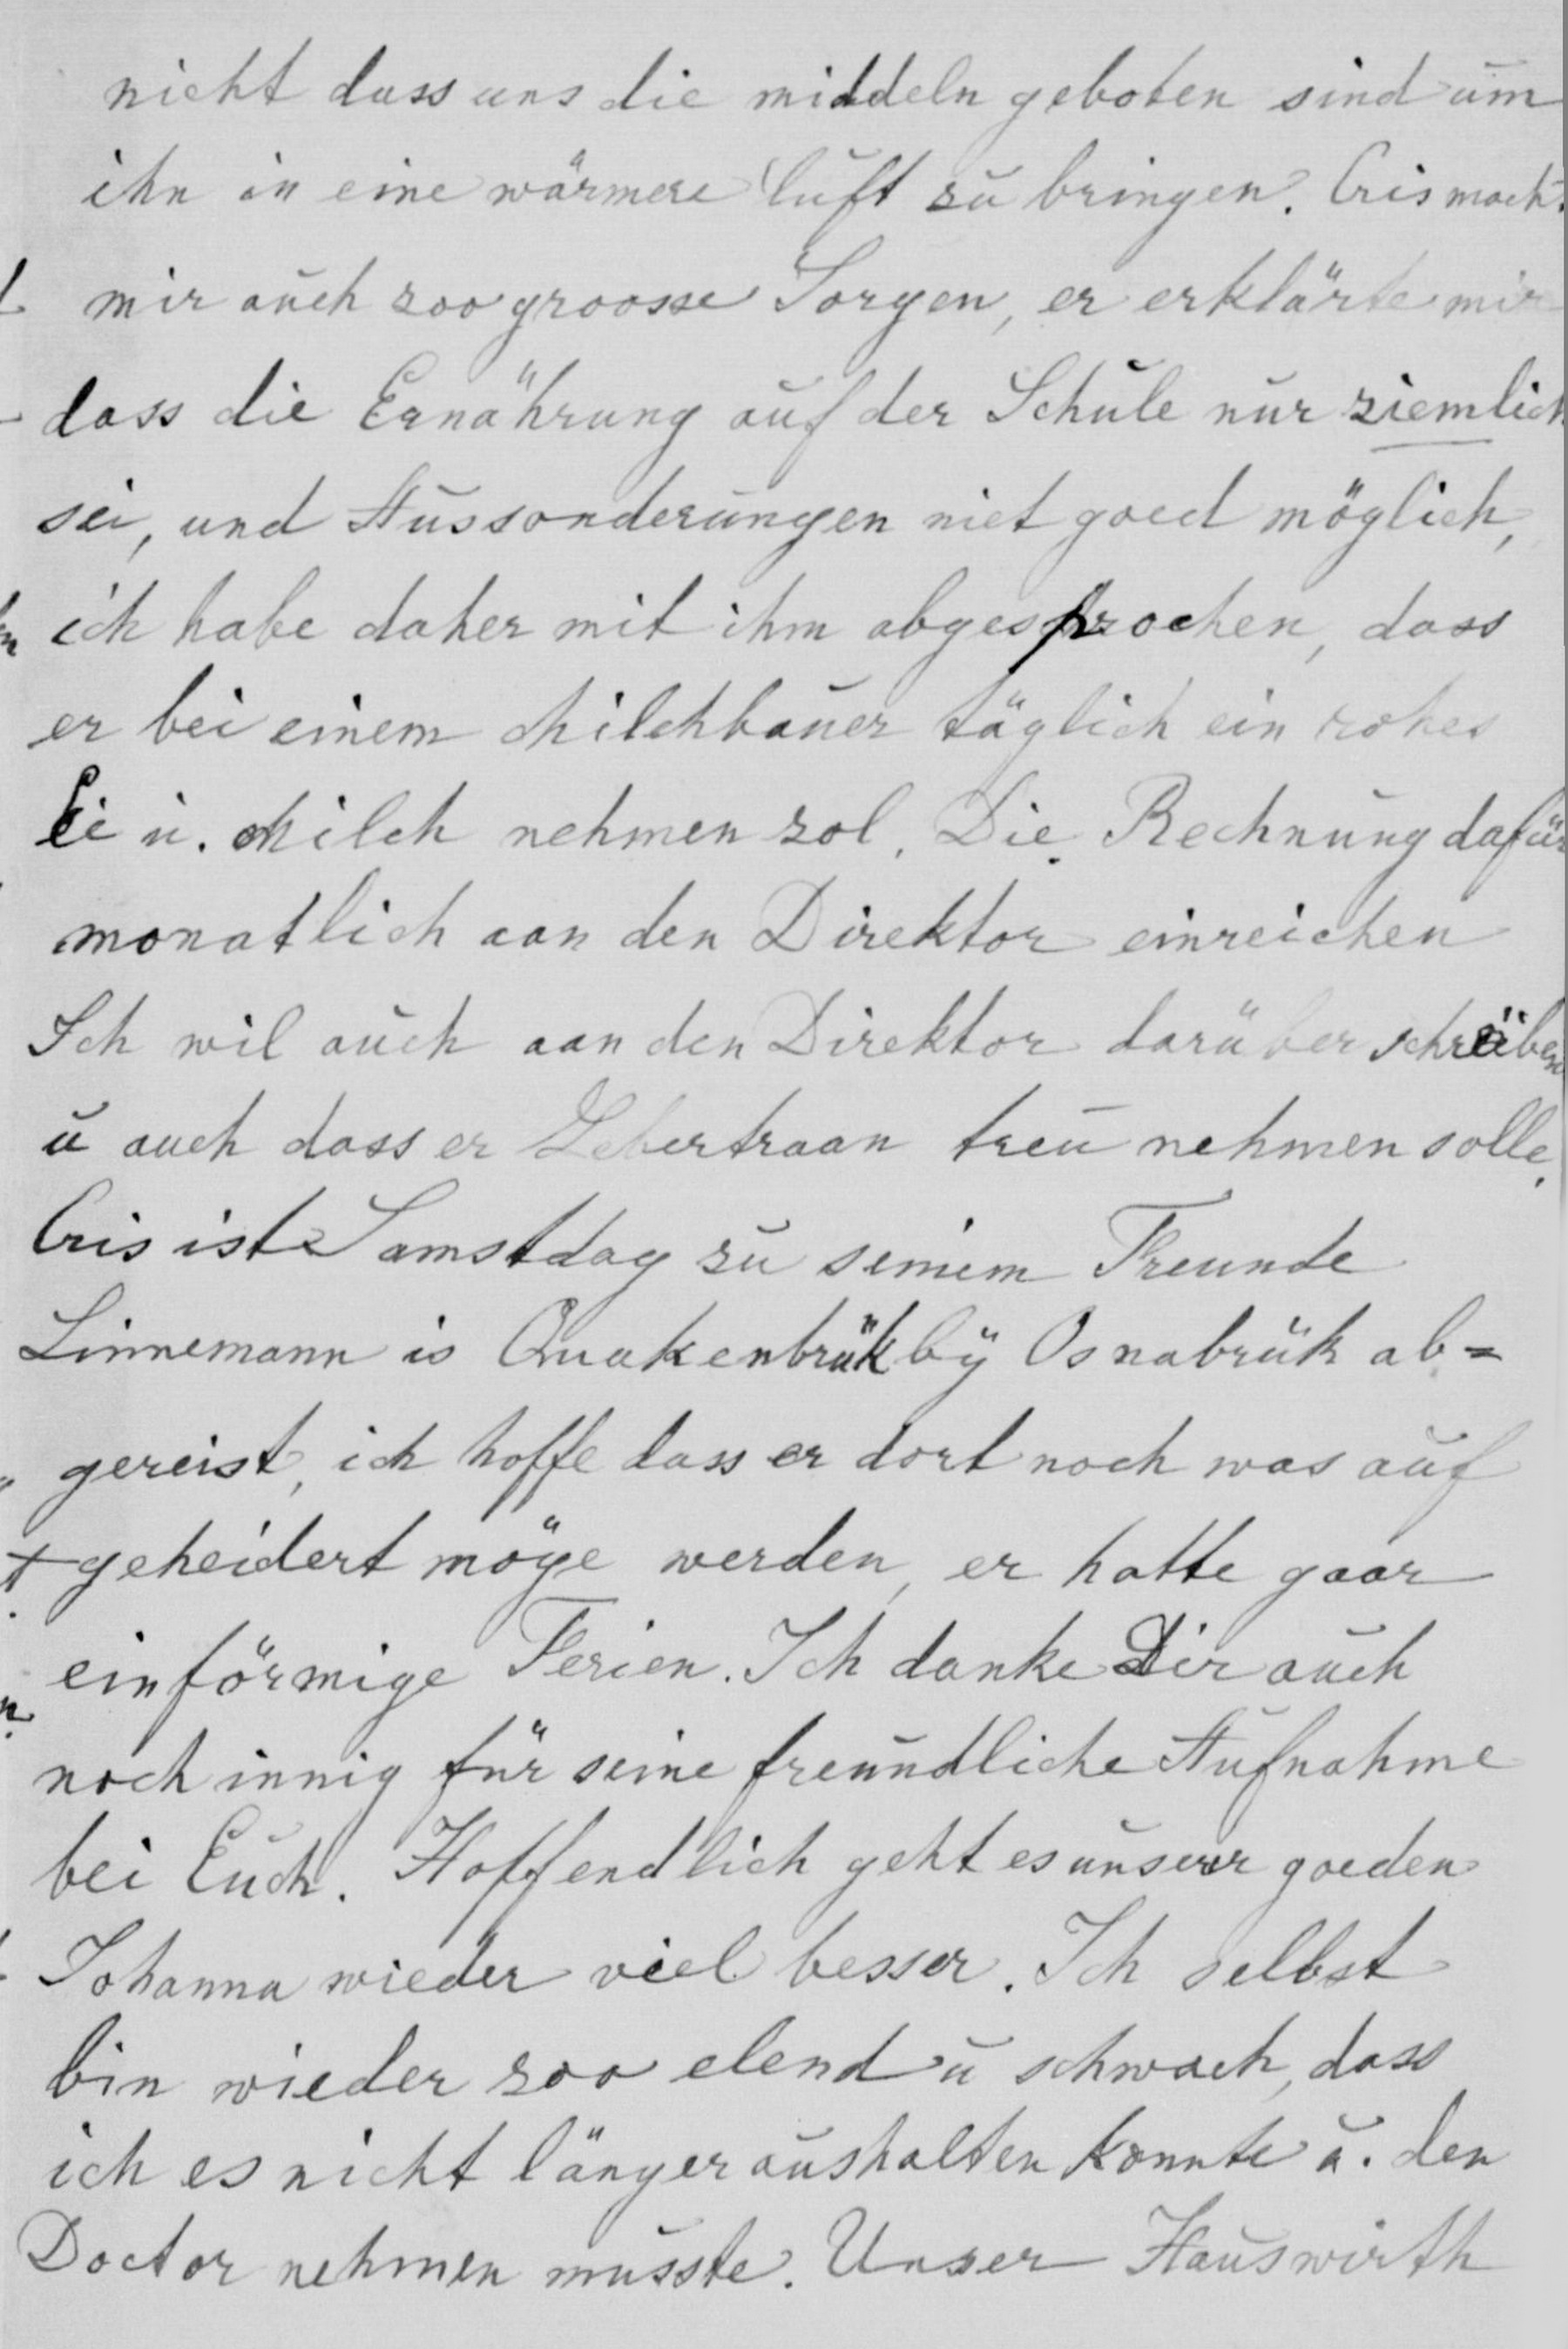 nicht dass uns die middeln geboten sind um
ihn in eine wärmere luft zu bringen. Cris macht
mir auch zoo groosse Sorgen, er erklärte mir
dass die Ernährung auf der Schule nur ziemlich
sei, und Aussonderungen niet goed möglich,
ich habe daher mit ihm abgesprochen, dass
er bei einem Milchbauer täglich ein rohes
Ei u. Milch nehmen zol. Die Rechnung dafür
monatlich aan den Direktor einreichen
Ich wil auch aan den Direktor darüber schreiben
u auch dass er Lebertraan treu nehmen solle.
Cris ist Samstdag zu seinem Freunde
Linnemann is Quakenbrük bÿ Osnabrük ab=
gereist, ich hoffe dass er dort noch was auf
geheidert möge werden, er hatte gaar
einförmige Ferien. Ich danke Dir auch
noch innig für seine freundliche Aufnahme
bei Euch. Hoffendlich geht es unserer goeden
Johanna wieder viel besser. Ich selbst
bin wieder zoo elend u schwach, dass
ich es nicht länger aushalten konnte u. den
Doctor nehmen musste. Unser Hauswirth